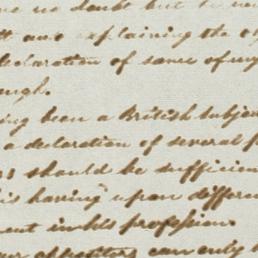 no doubt but be
and explaining the
declaration of some of my
ough.
ing been a British Subjec
a declaration of several
should be sufficien
is having upon differ
ent in his profession
can only